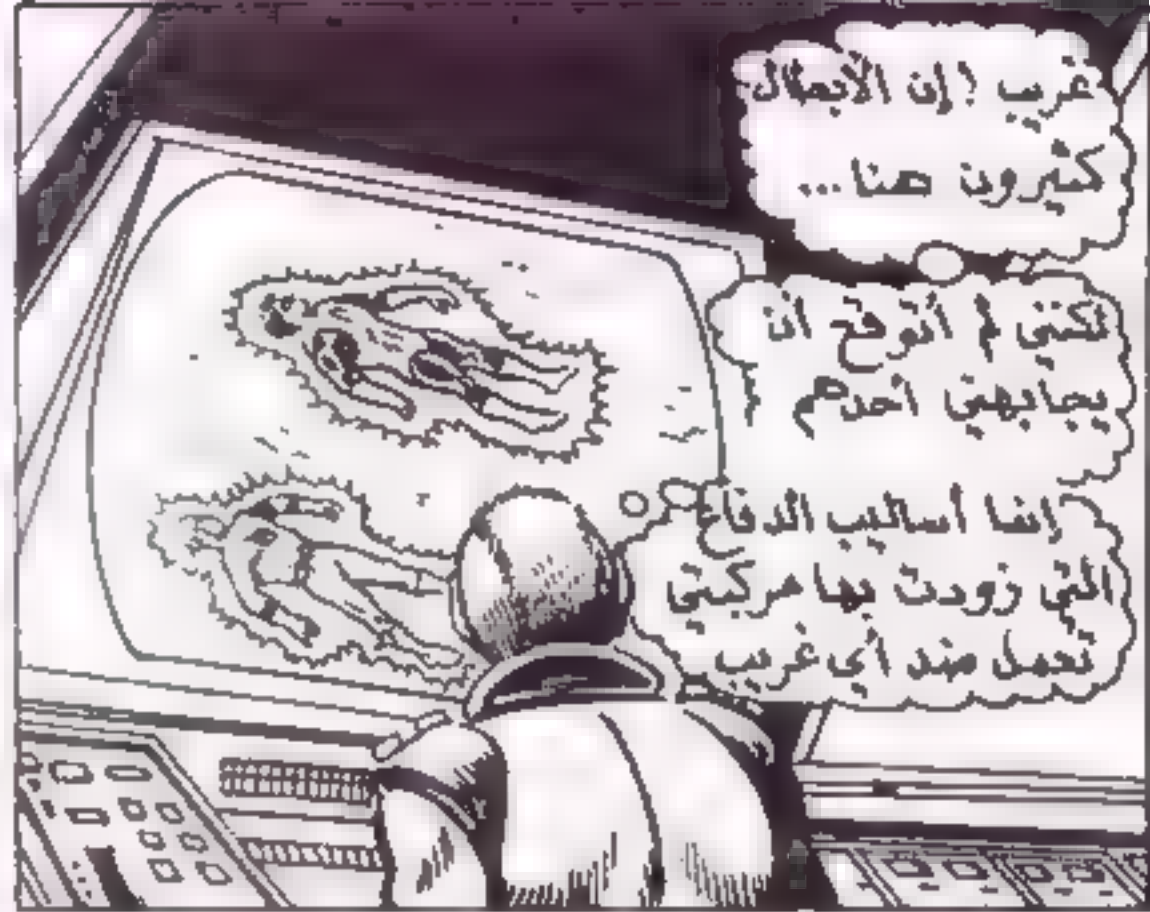 غريب ! إن الأبطال
كثيرون هنا...
لكنني لم أتوقع أن
يجابهني أحدهم
إنها أساليب الدفاع
التي زودت بها مركبتي
تعمل ضد أي غريب